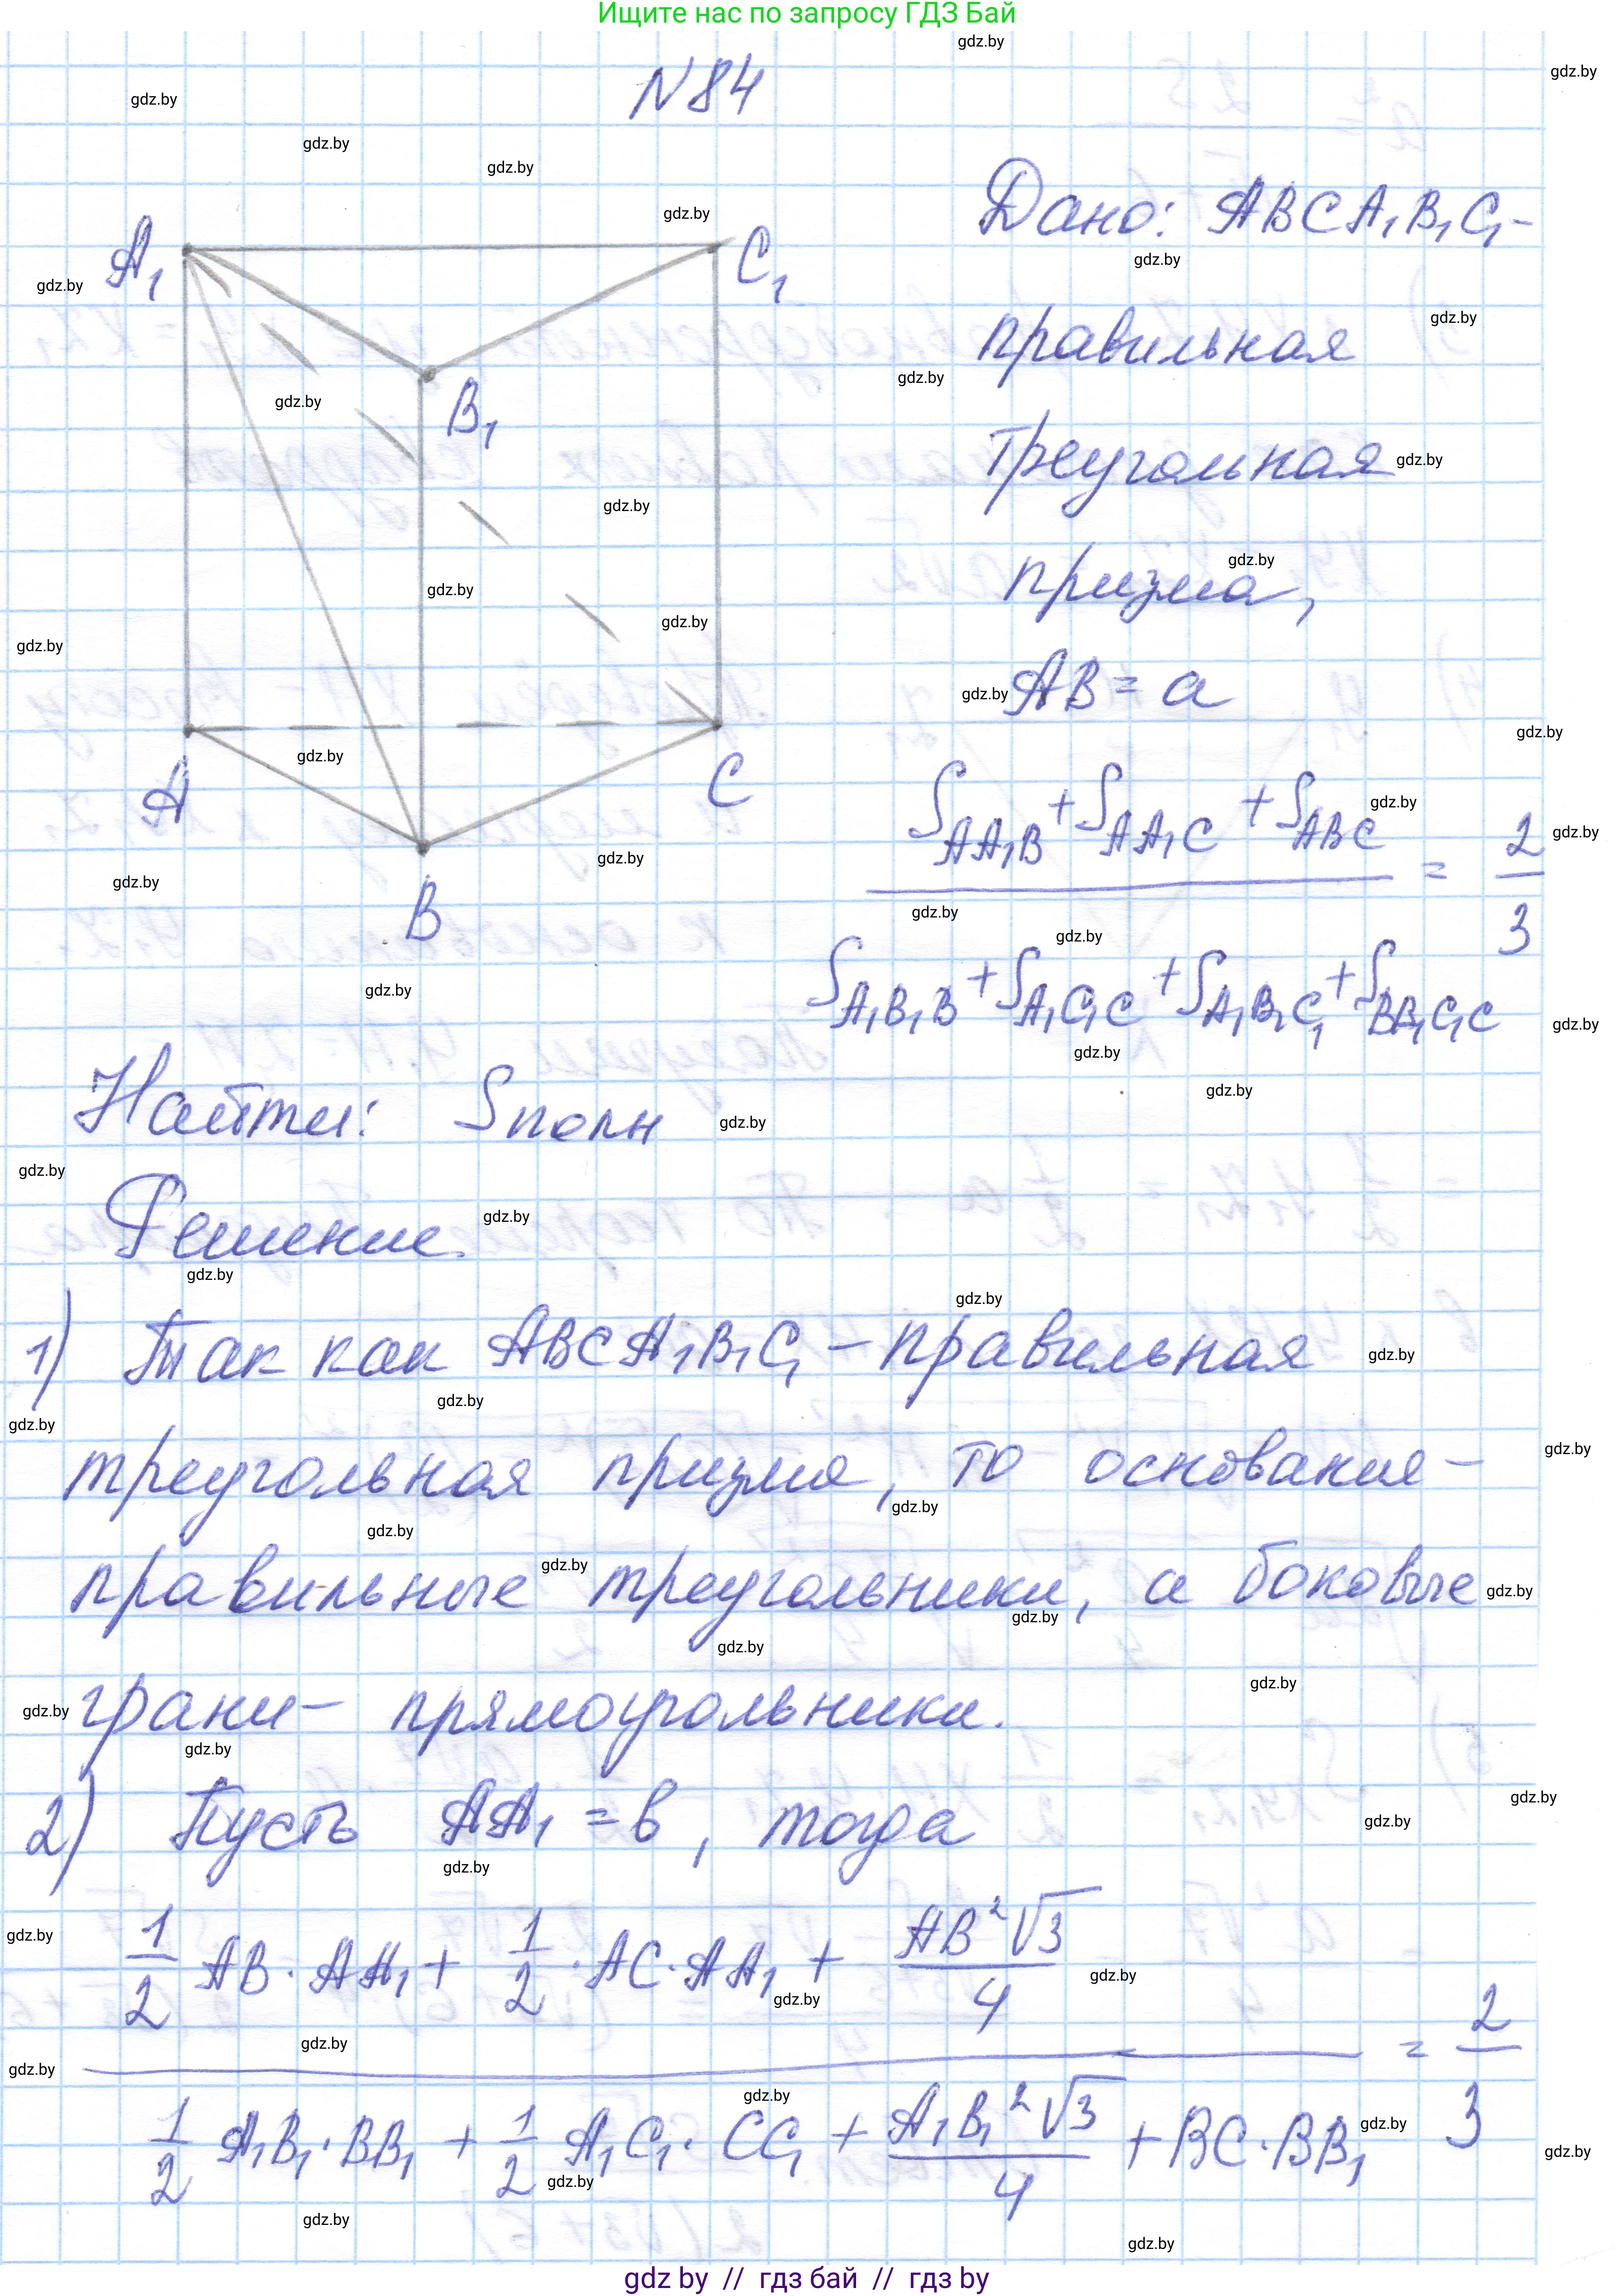 Ищите нас по запросу ГДЗ Бай
N84
Дано: ABCA₁B₁C₁-
правильная
треугольная
призма,
AB = a
S_AA₁B + S_AA₁C + S_ABC / S_A₁B₁B + S_A₁C₁C + S_A₁B₁C₁ + S_BB₁C₁C = 2/3
A₁
C₁
B₁
A
C
B
Найти: Sполн
Решение.
1) Так как ABCA₁B₁C₁ – правильная
треугольная призма, то основания –
правильные треугольники, а боковые
грани – прямоугольники.
2) Пусть AA₁ = в, тогда
1/2 AB · AA₁ + 1/2 · AC · AA₁ + AB²√3/4
= 2/3
1/2 A₁B₁ · BB₁ + 1/2 A₁C₁ · CC₁ + A₁B₁²√3/4 + BC · BB₁
gdz.by
gdz by // гдз бай // гдз by